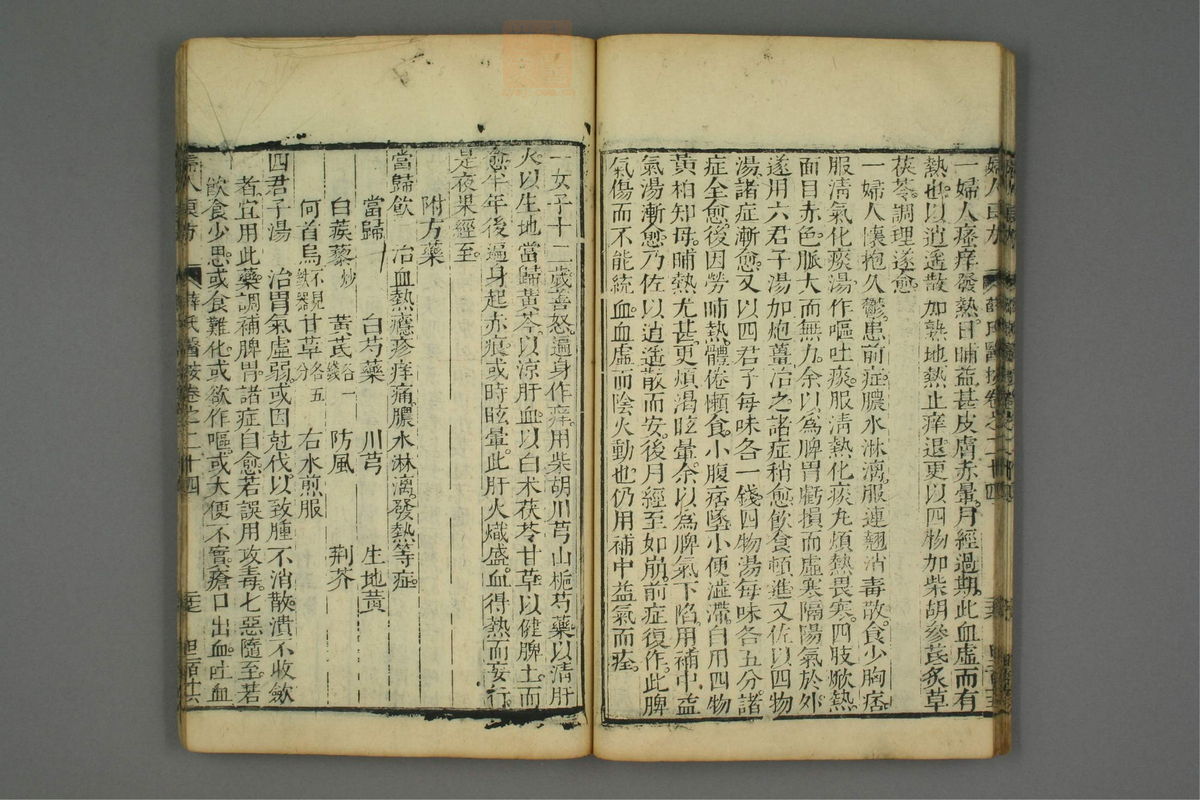 一婦人瘙痒發熱日晡益甚皮膚赤暈月經過期此血虛而有
熱也以逍遙散加熟地熱止痒退更以四物加柴胡參芪炙草
茯苓調理遂愈
一婦人懷抱久鬱患前症膿水淋漓服連翹消毒散食少胸痞
服清氣化痰湯作嘔吐痰服清熱化痰丸煩熱畏寒四肢厥熱
面目赤色脈大而無力余以為脾胃虧損而虛寒隔陽氣於外
遂用六君子湯加炮薑治之諸症稍愈飲食頓進又佐以四物
湯諸症漸愈又以四君子每味各一錢四物湯每味各五分諸
症全愈後因勞晡熱體倦懶食小腹痞墜小便澁滯自用四物
黃柏知母晡熱尤甚更煩渴眩暈余以為脾氣下陷用補中益
氣湯漸愈乃佐以逍遙散而安後月經至如崩前症復作此脾
氣傷而不能統血血虛而陰火動也仍用補中益氣而痊
一女子十二歲善怒遍身作痒用柴胡川芎山梔芍藥以清肝
火以生地當歸黃芩以涼肝血以白朮茯苓甘草以健脾土而
愈半年後遍身起赤痕或時眩暈此肝火熾盛血得熱而妄行
是夜果經至
附方藥
當歸飲　治血熱癮疹痒痛膿水淋漓發熱等症
當歸　白芍藥　川芎　生地黃
白蒺藜炒　黃芪各一錢　防風　荆芥
何首烏不見鉄器　甘草各五分　右水煎服
四君子湯　治胃氣虛弱或因尅伐以致腫不消散潰不收斂
者宜用此藥調補脾胃諸症自愈若誤用攻毒七惡隨至若
飲食少思或食難化或欲作嘔或大便不實瘡口出血吐血
婦人良方　薛氏醫按卷之二十四